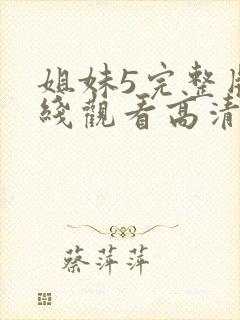 姐妹5完整
綫觀看高清
蔡萍萍